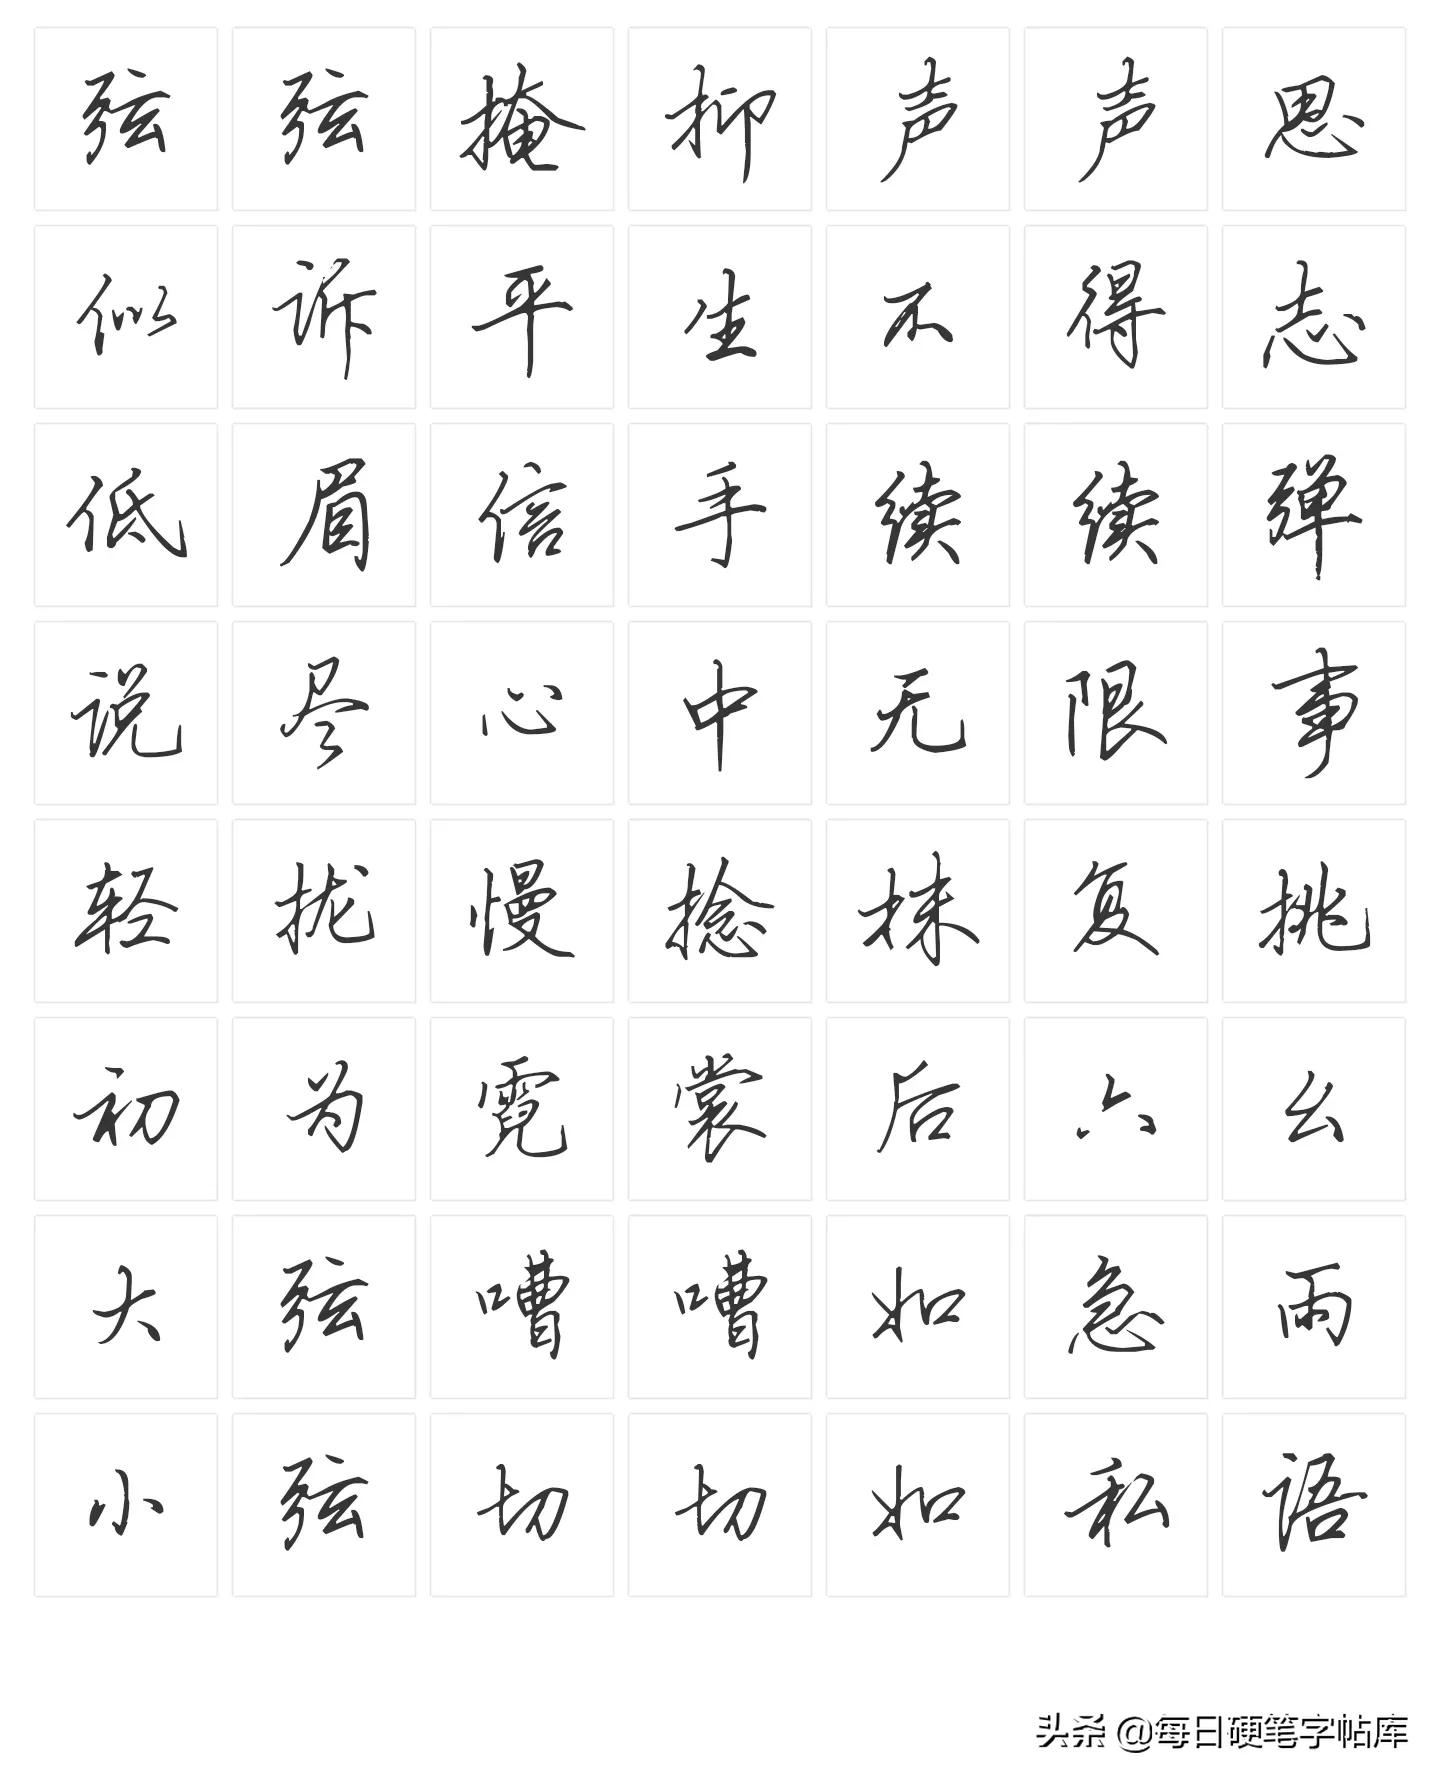 弦弦掩抑声声思
似诉平生不得志
低眉信手续续弹
说尽心中无限事
轻拢慢捻抹复挑
初为霓裳后六幺
大弦嘈嘈如急雨
小弦切切如私语
头条 @每日硬笔字帖库